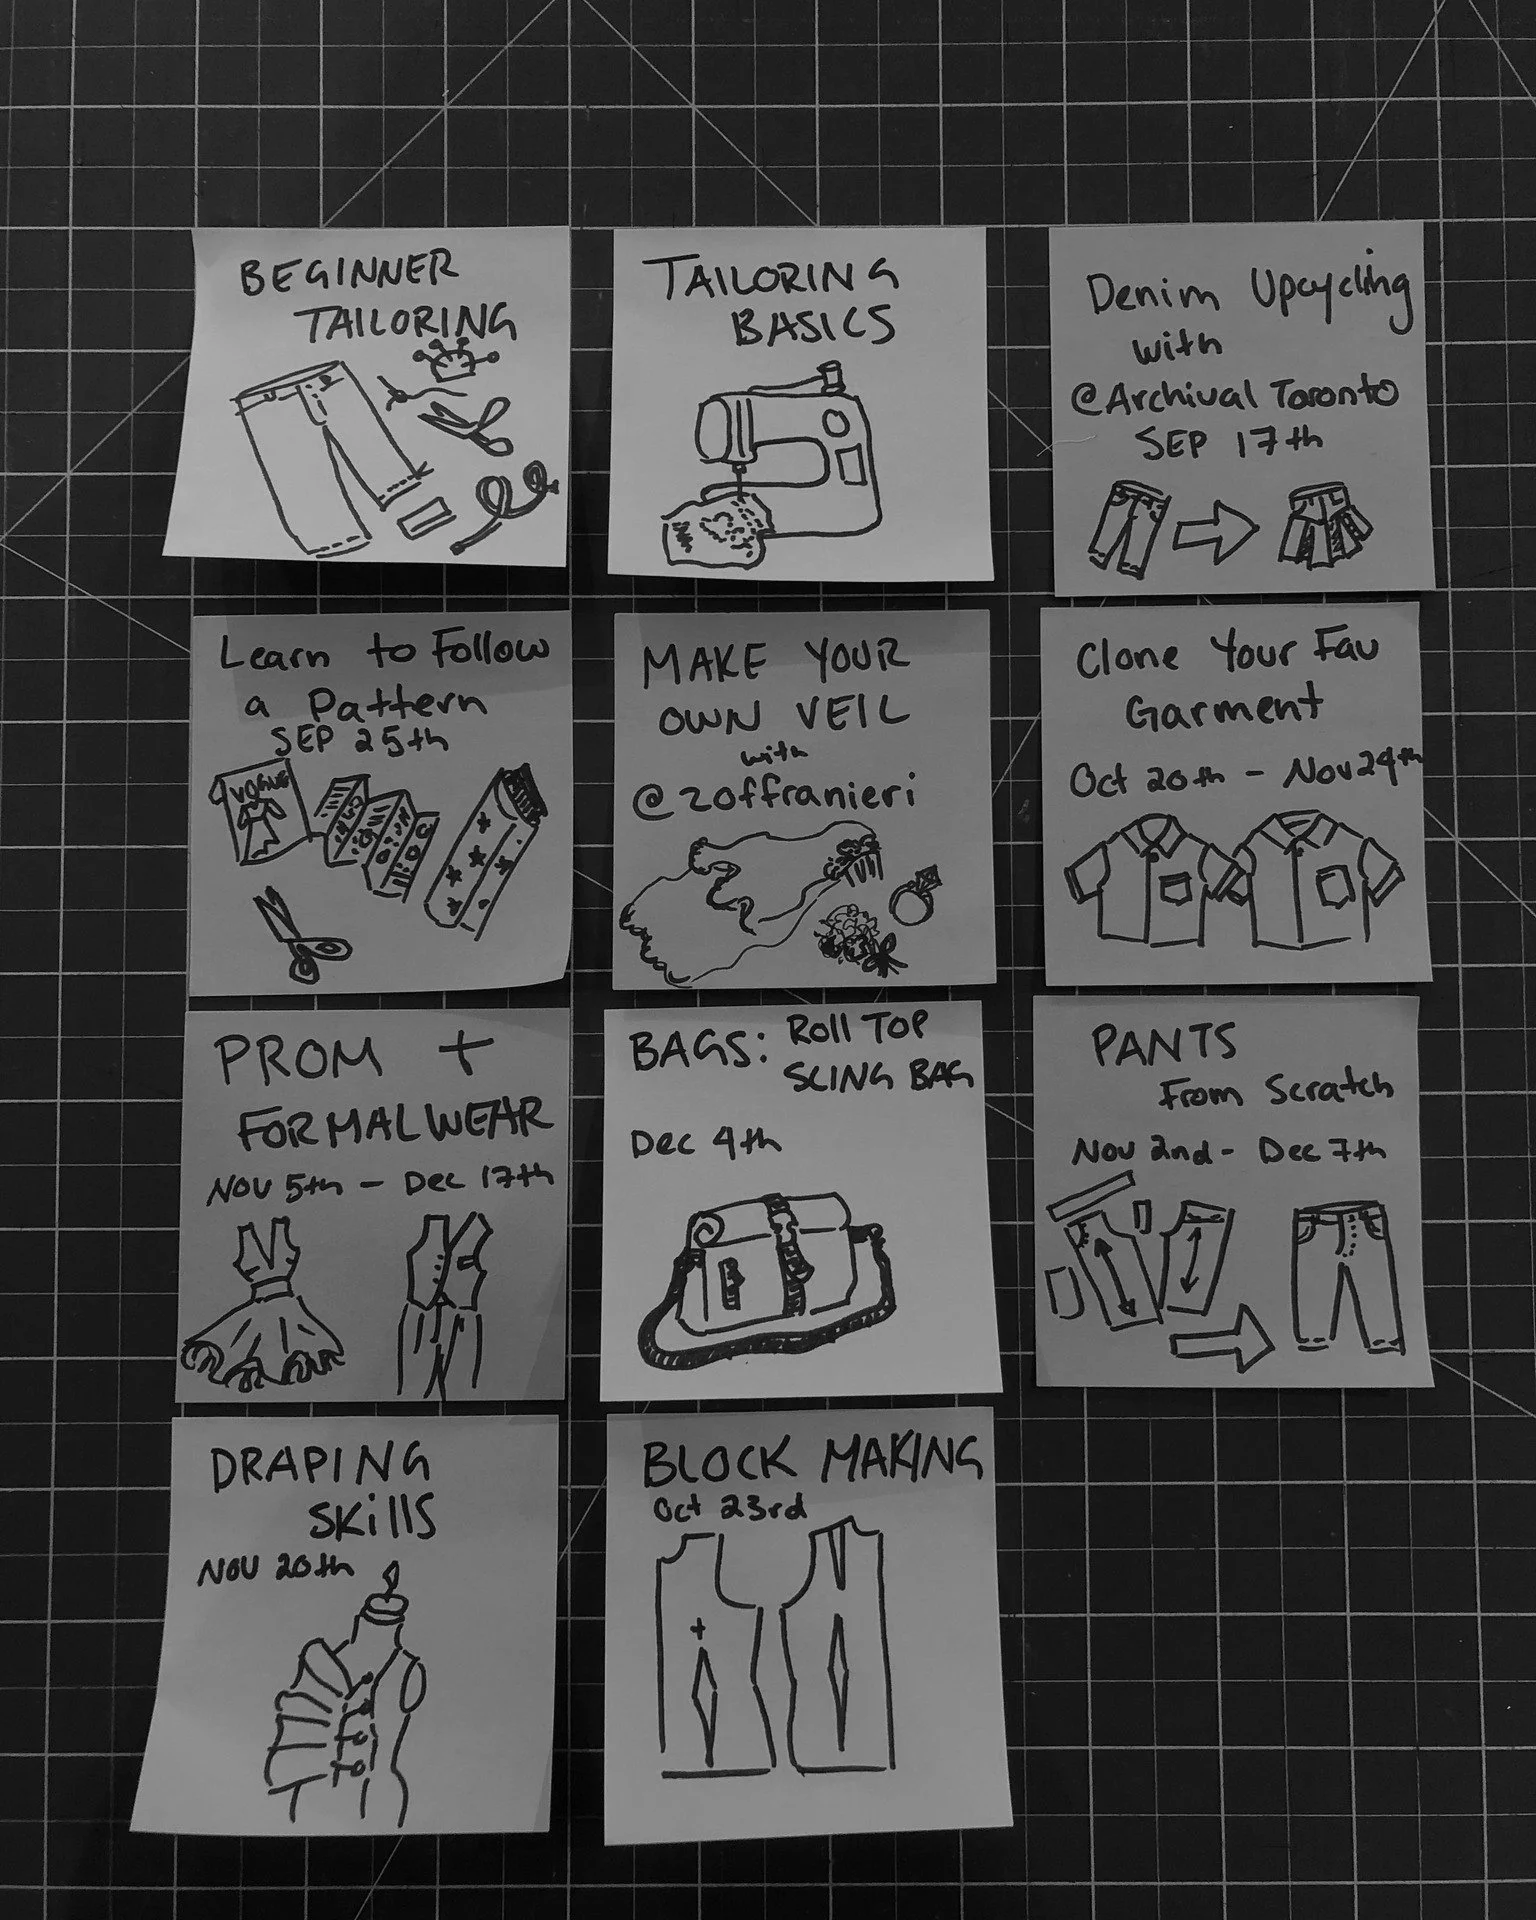 BEGINNER
TAILORING
TAILORING
BASICS
Denim Upcycling
with
@Archival Toronto
SEP 17th
Learn to Follow
a Pattern
SEP 25th
VOGUE
MAKE YOUR
OWN VEIL
with
@zoffranieri
Clone Your Fav
Garment
Oct 20th - Nov 24th
PROM +
FORMALWEAR
NOV 5th - Dec 17th
BAGS: Roll TOP
SLING BAG
Dec 4th
PANTS
From Scratch
Nov 2nd - Dec 7th
DRAPING
SKills
NOV 20th
BLOCK MAKING
Oct 23rd